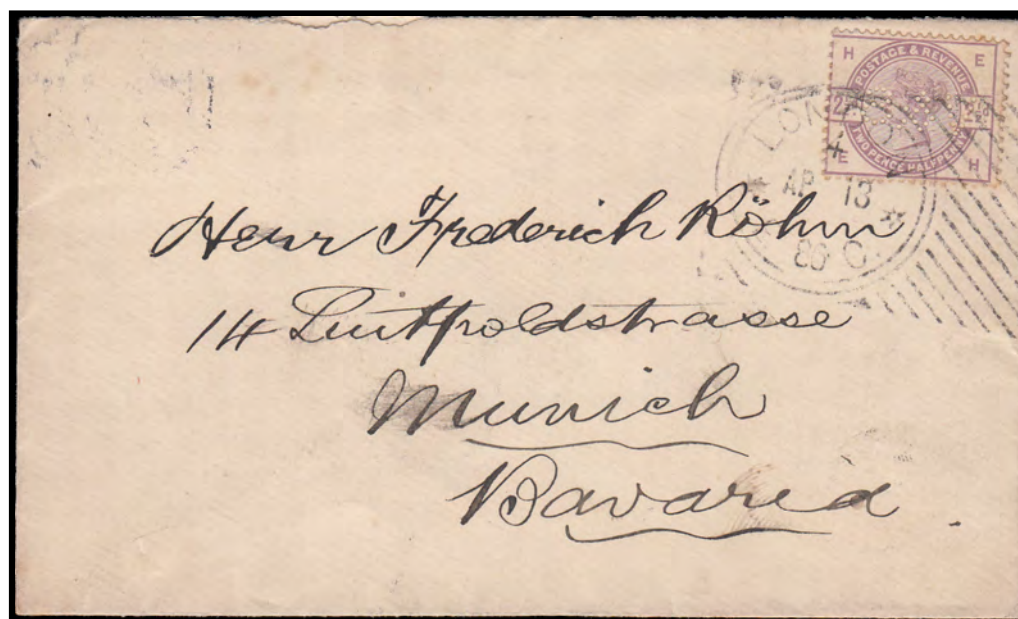 H E
POSTAGE & REVENUE
2½D 2½D
TWO PENCE HALFPENNY
E H
LONDON
AP 13
86 C
Herr Frederich Röhm
14 Luitpoldstrasse
Munich
Bavaria.